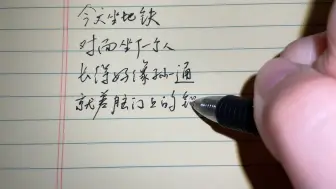 今天坐地铁
对面坐了个人
长得好像孙通
就差脑门上的